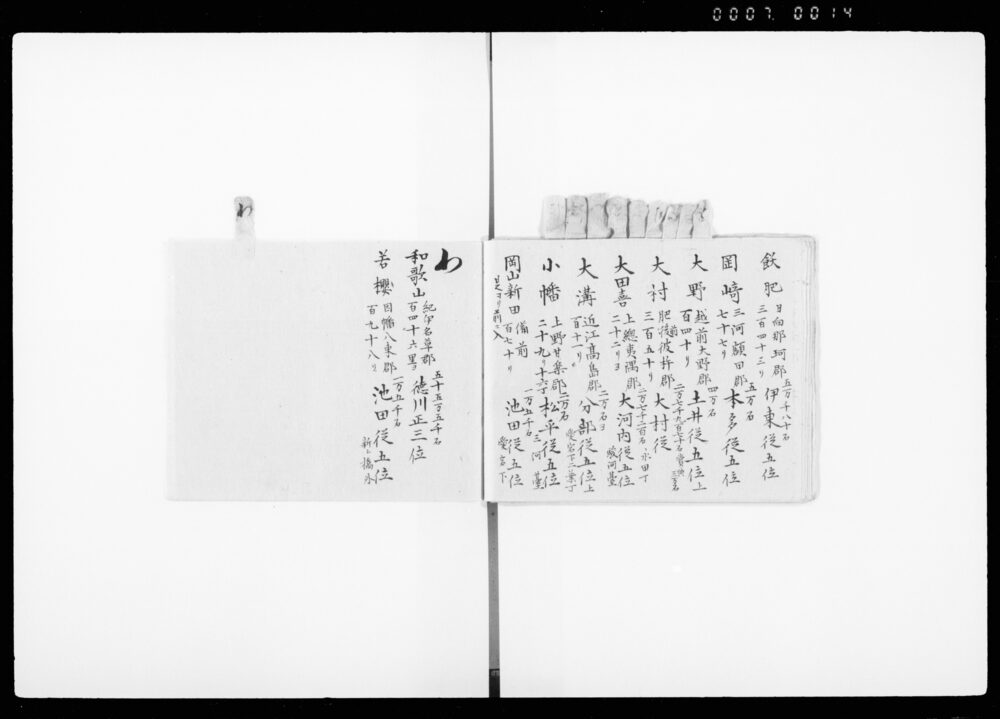 0007 0014
飫肥 日向那珂郡 五万千八十石 伊東従五位
三百四十三リ
岡崎 三河額田郡 五万石 本多従五位
七十七リ
大野 越前大野郡 四万石 土井従五位
百四十リ 上
大村 肥前彼杵郡 二万七千九百七十石 大村従
三百五十リ
大田喜 上總夷隅郡 二万七千二百石 大河内従五位
二十二リ 永田丁 駿河臺
大溝 近江高島郡 二万石 分部従五位
百十一リ 愛宕下二葉丁 上
小幡 上野甘楽郡 二万石 松平従五位
二十九リ十六丁 三河臺
岡山新田 備前 一万五千石 池田従五位
百七十リ 愛宕下
是ヨリ前ニ入
わ
和歌山 紀伊名草郡 五十五万五千石 徳川正三位
百四十六里
若櫻 因幡八東郡 一万五千石 池田従五位
百九十八リ 新シ橋外
わ